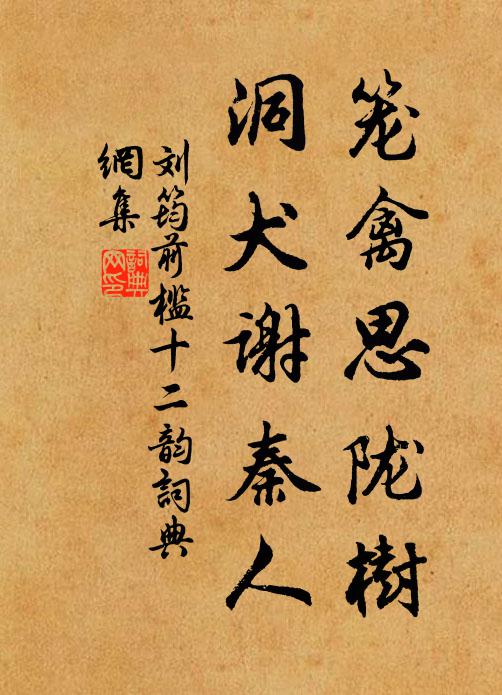 笼禽思陇樹
洞犬谢秦人
刘筠前槛十二韵詞典
網集
詞典網印